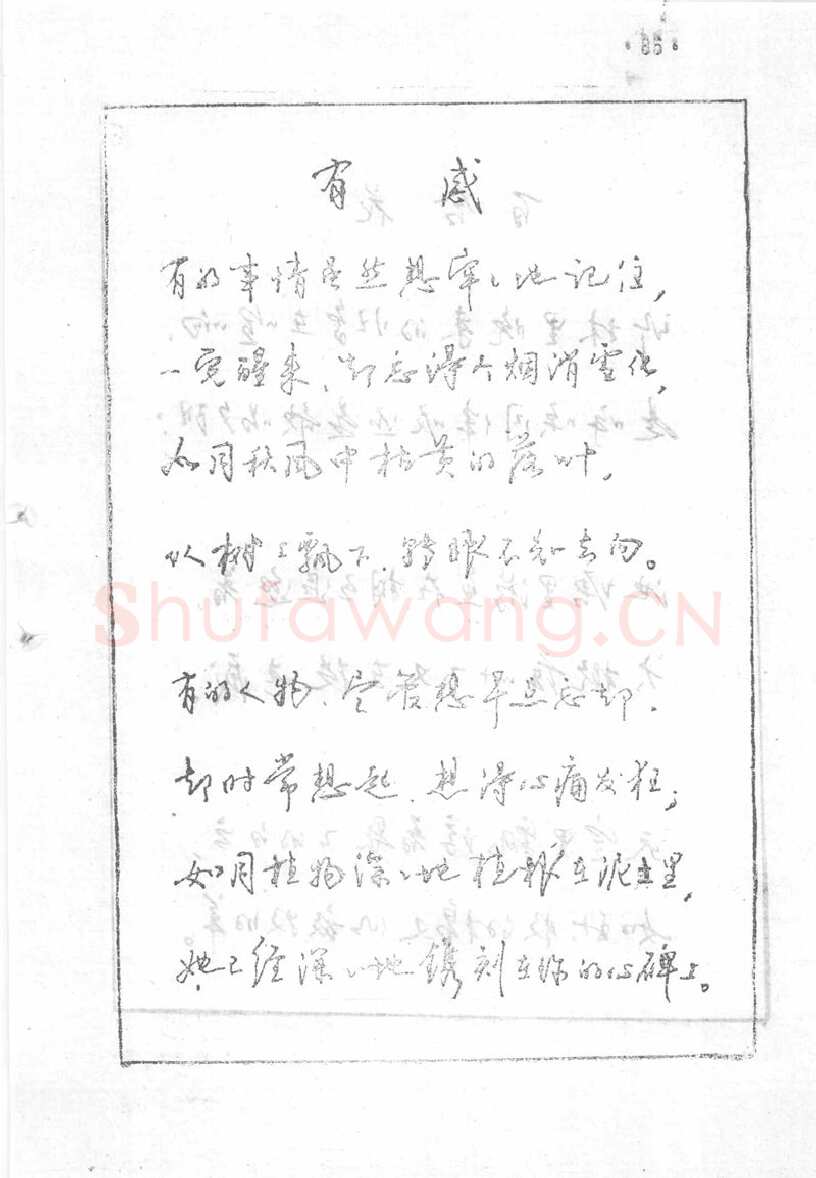 ·86·
有 感
有的事情虽然想牢々地记住,
一觉醒来、却忘得个烟消雲化,
如同秋风中枯黄的落叶,
从树上飘下、转眼不知去向。
Shufawang.CN
有的人物、尽管想早点忘却.
却时常想起、想得心痛发狂;
如同植物深々地植根在泥土里,
她已经深々地镌刻在你的心碑上。